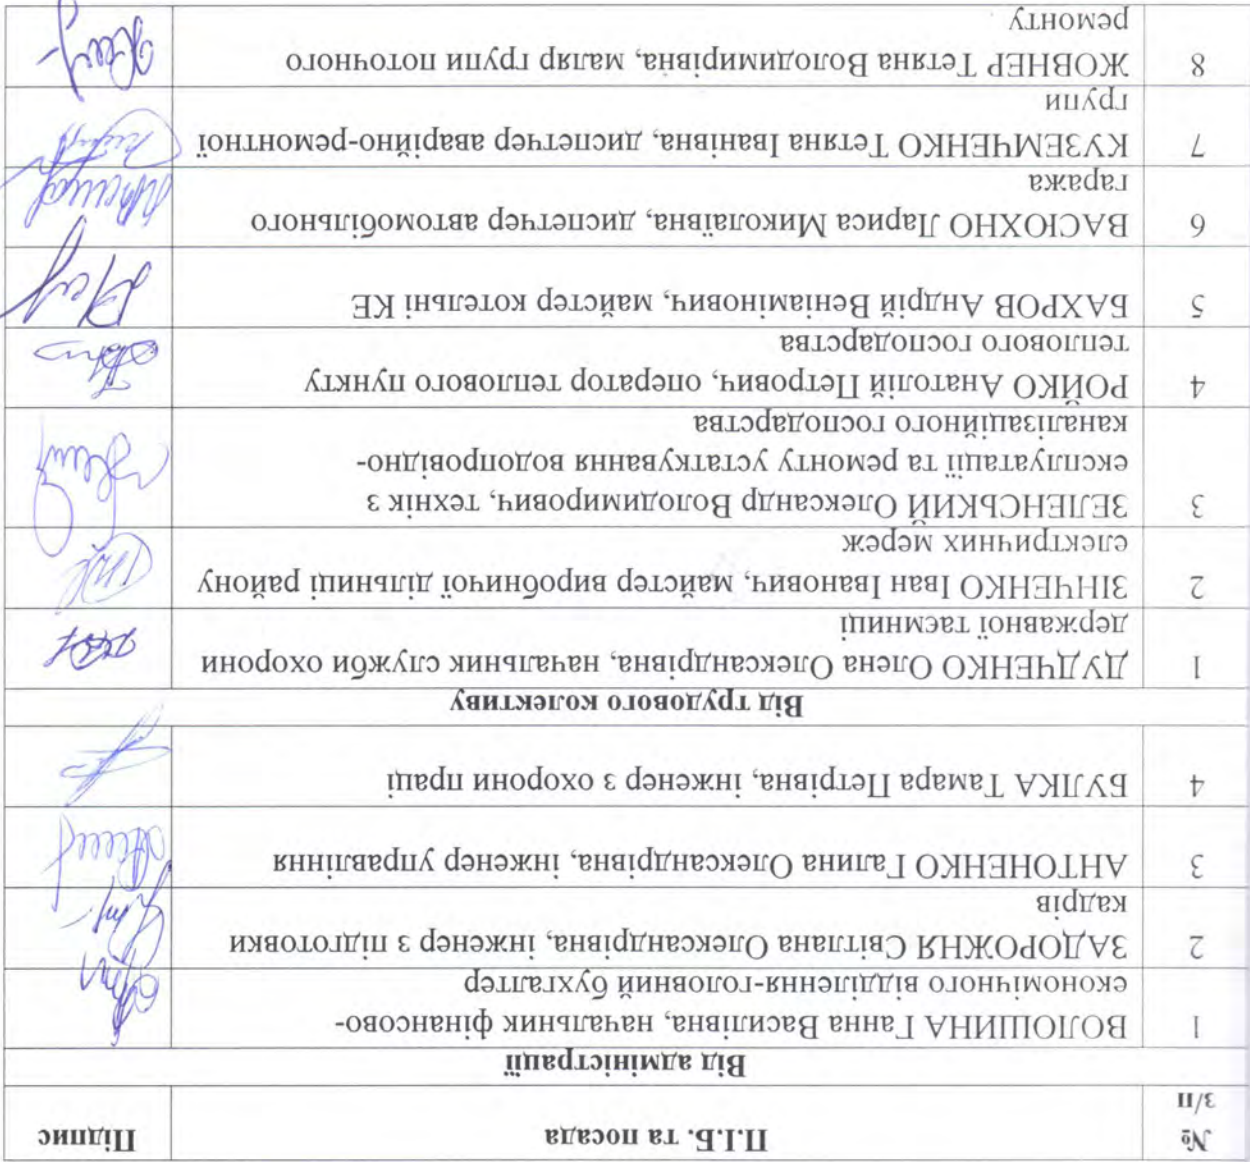 № з/п П.І.Б. та посада Підпис
Від адміністрації
1 ВОЛОШИНА Ганна Василівна, начальник фінансово-
економічного відділення-головний бухгалтер
2 ЗАДОРОЖНЯ Світлана Олександрівна, інженер з підготовки
кадрів
3 АНТОНЕНКО Галина Олександрівна, інженер управління
4 БУЛКА Тамара Петрівна, інженер з охорони праці
Від трудового колективу
1 ДУДЧЕНКО Олена Олександрівна, начальник служби охорони
державної таємниці
2 ЗІНЧЕНКО Іван Іванович, майстер виробничої дільниці району
електричних мереж
3 ЗЕЛЕНСЬКИЙ Олександр Володимирович, технік з
експлуатації та ремонту устаткування водопровідно-
каналізаційного господарства
4 РОЙКО Анатолій Петрович, оператор теплового пункту
теплового господарства
5 БАХРОВ Андрій Веніамінович, майстер котельні КЕ
6 ВАСЮХНО Лариса Миколаївна, диспетчер автомобільного
гаража
7 КУЗЕМЧЕНКО Тетяна Іванівна, диспетчер аварійно-ремонтної
групи
8 ЖОВНЕР Тетяна Володимирівна, маляр групи поточного
ремонту